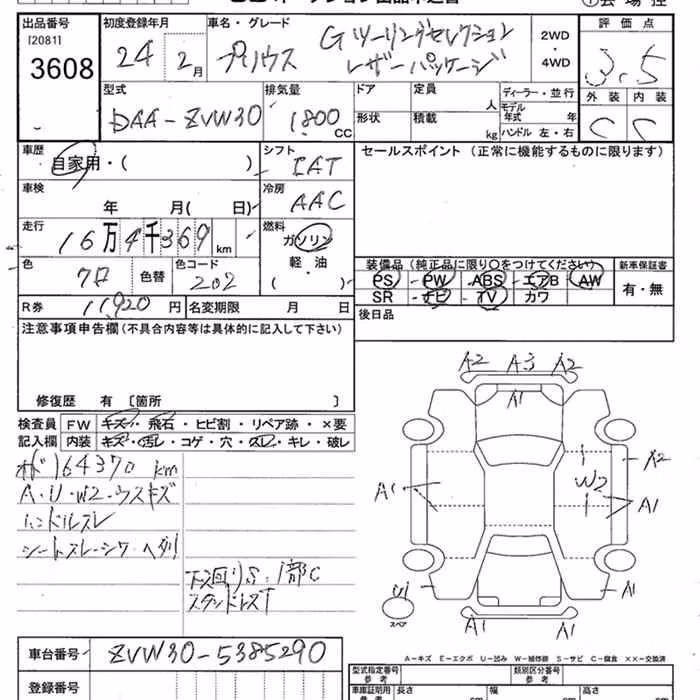 出品番号 初度登録年月 車名・グレード 評価点
[2081]
3608 24 2月 プリウス Gツーリングセレクション レザーパッケージ 2WD・4WD 3.5
外装 内装
C C
型式 排気量 ドア 定員 人 ディーラー・並行
DAA-ZVW30 1800 CC 形状 積載 kg モデル年式 年
ハンドル 左・右
車歴 シフト セールスポイント (正常に機能するものに限ります)
自家用・( ) IAT
車検 冷房
年 月( 日) AAC
走行 燃料
16万4千369km ガソリン
軽・油
( )
色 色替 色コード
クロ 202
装備品 (純正品に限り○をつけてください) 新車保証書
PS PW ABS エアB AW 有・無
SR ナビ TV カワ
R券 11,920円 名変期限 月 日 後日品
注意事項申告欄(不具合内容等は具体的に記入して下さい)
修復歴 有 [箇所 ]
検査員 FW キズ・飛石・ヒビ割・リペア跡・×要
記入欄 内装 キズ・汚レ・コゲ・穴・スレ・キレ・破レ
164370 km
A・U・W2・ウスキズ
ハンドルスレ
シートスレ・シワ・ヘタリ
下廻りS・1部C
A2 A3 A2
A1
A2
W2
A1 A1
U1 A1
スペア
A1 A1
A-キズ E-エクボ U-凹み W-補修跡 S-サビ C-腐食 ××-交換済
車台番号 ZVW30-5385290
登録番号
型式指定番号 参考 類別区分番号 参考
車庫証明用 参考 長さ cm 幅 cm 高さ cm